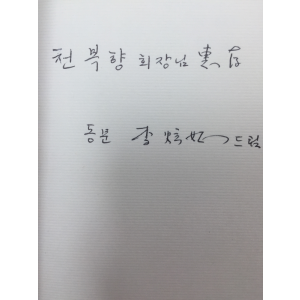 천복향 회장님 惠存
동문 李炫 드림